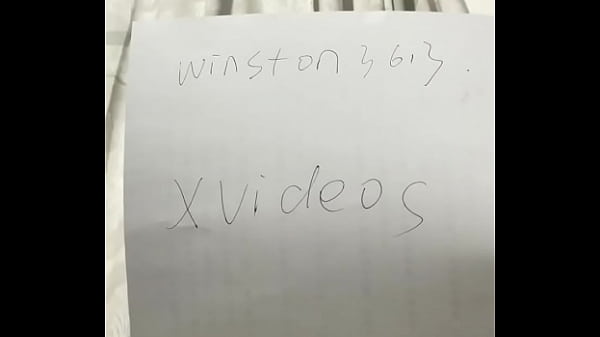 winston3613.
xvideos